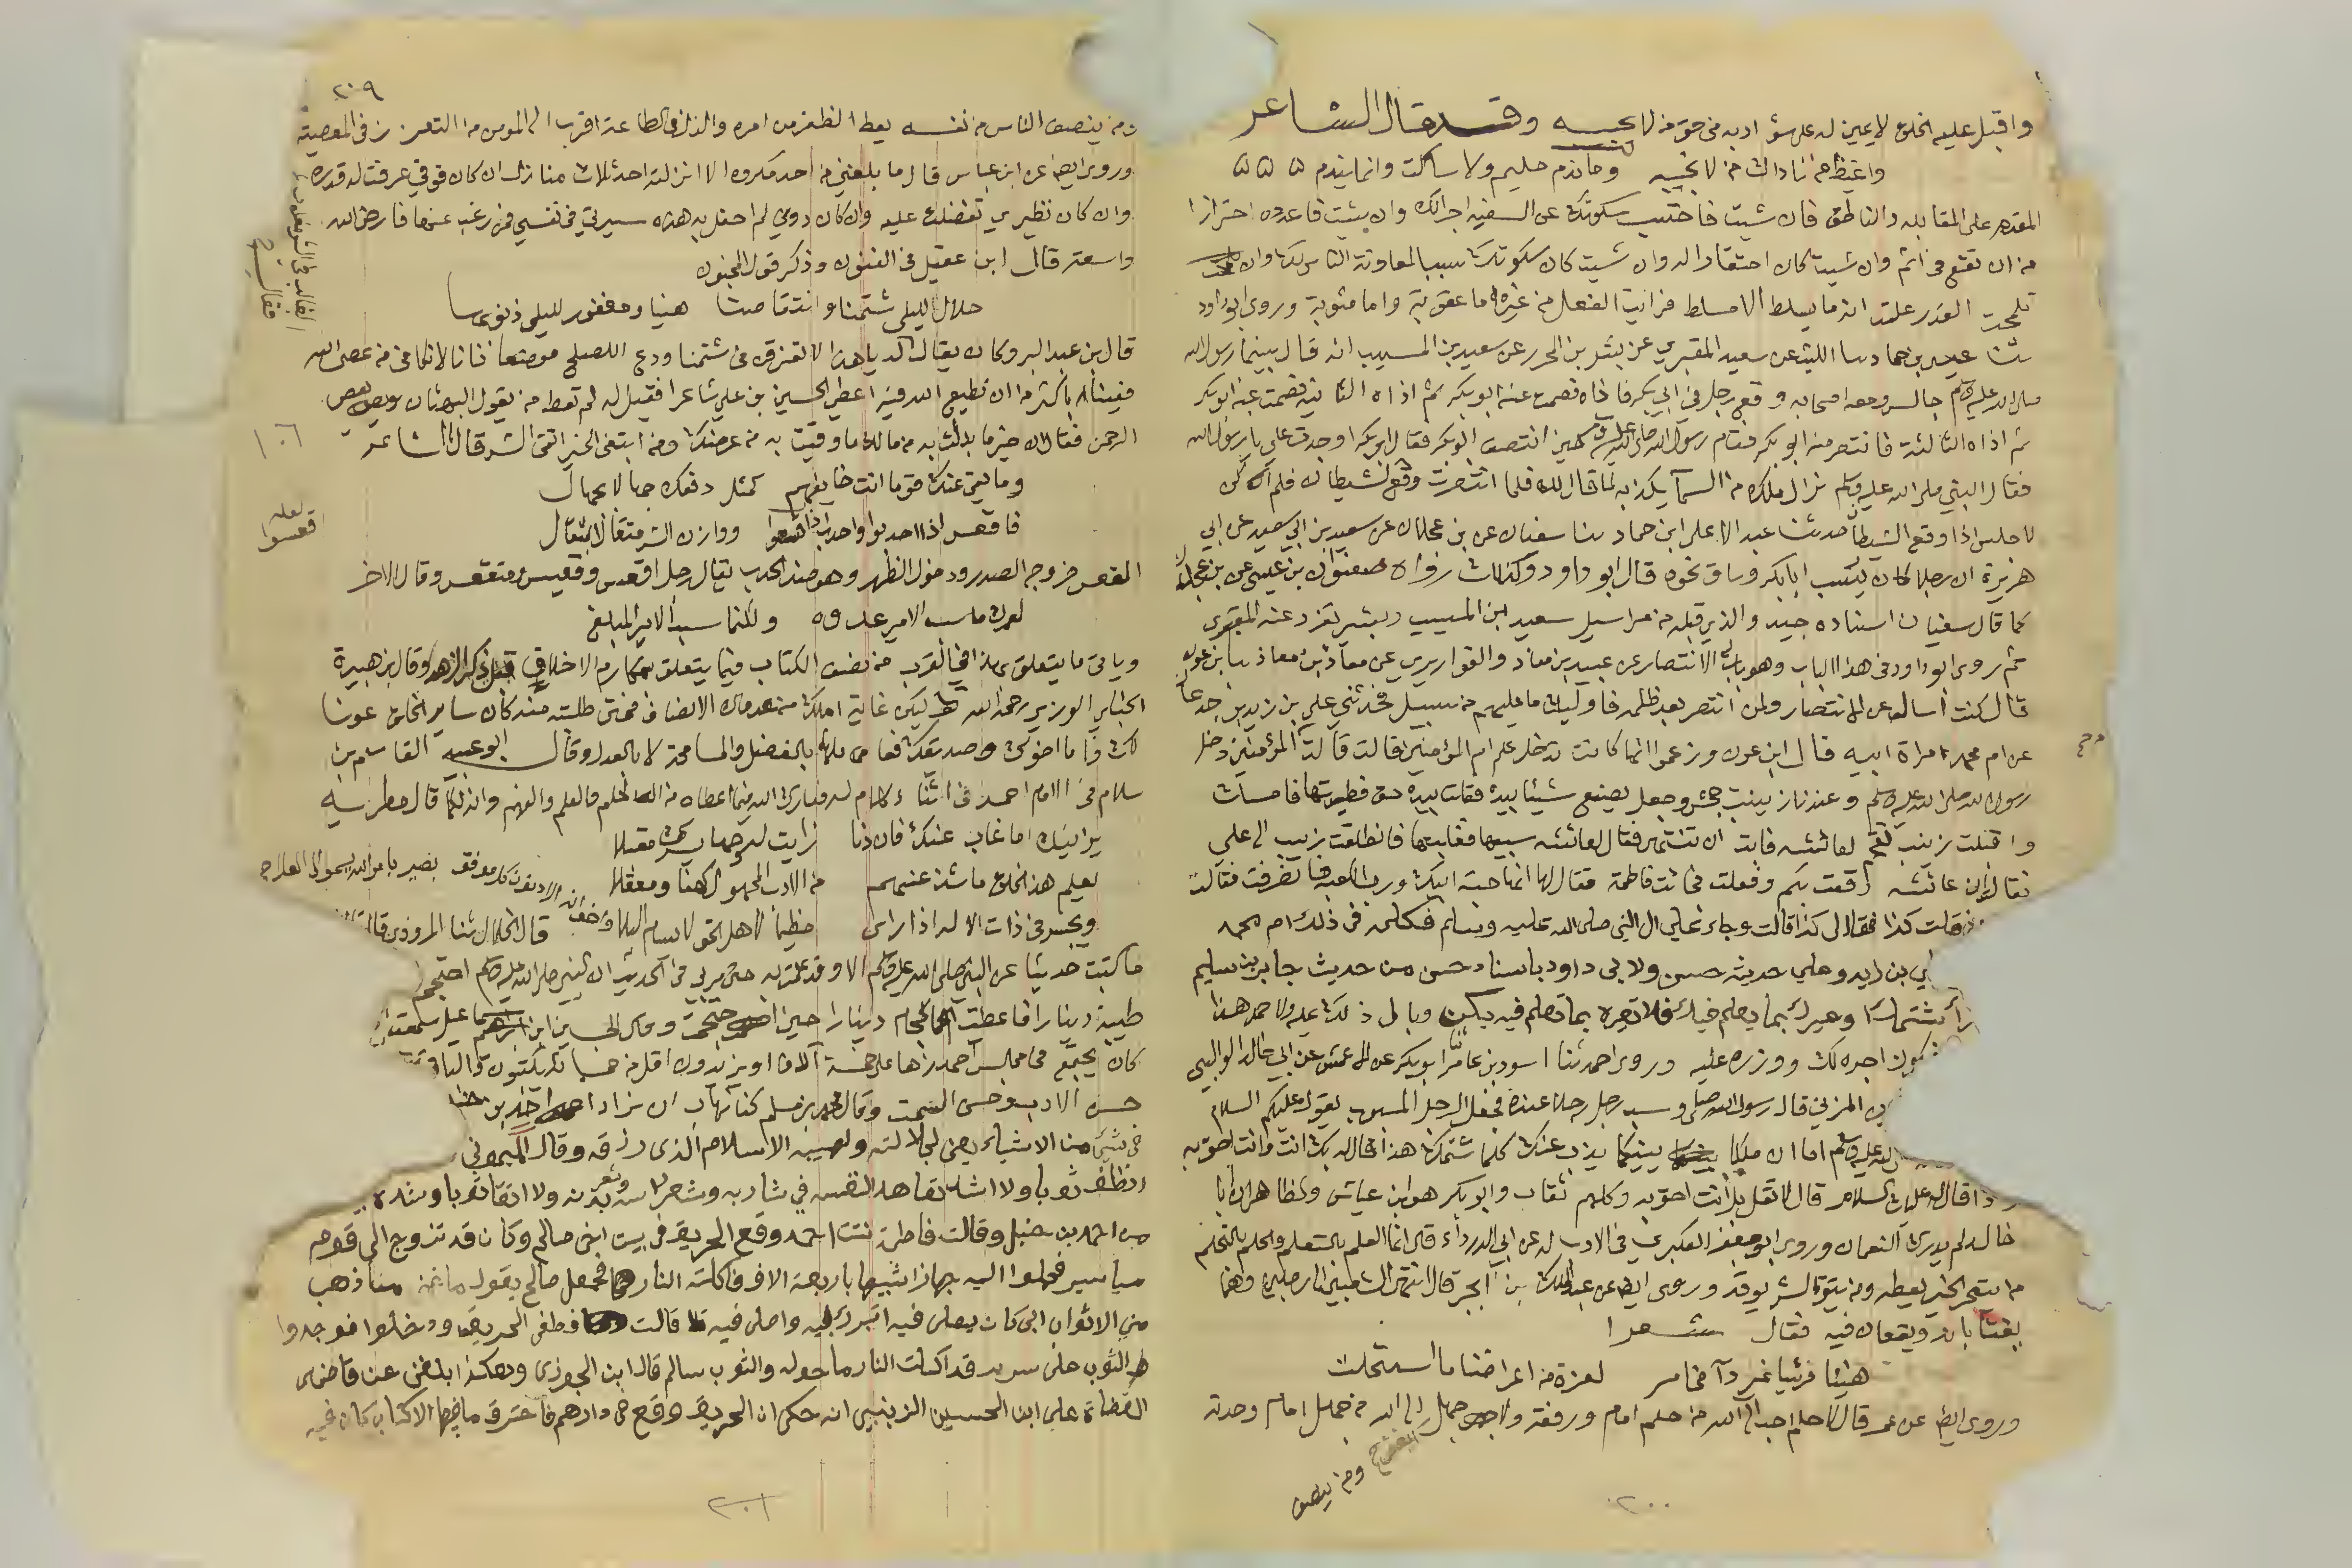 واقبل عليه الخلق لا يمين له على سؤ ادبه فى حق من لا يجيبه وقد قال الشاعر
واغيظ من ناداك من لا يجيبه
وما نذم حليم ولا ساكت وانما يندم
المقدم على المقابله والناطق فان شيت فاحتسب سكوتك عن السفيه اجرا لك وان شئت فاعدده احترازا
من ان تقع فى اثم وان شيت كان احتقارا له وان شيت كان سكوتك سببا لمعاونة الناس لك وان
تلمحت القدر علمت انه ما يسلط الا مسلط فرايت الفعل من غيره اما عقوبة واما مثوبة وروى ابو داود
ثنا عيسى بن حماد ثنا الليث عن سعيد المقبري عن بشير بن المحرر عن سعيد بن المسيب انه قال بينما رسول الله
صلى الله عليه وسلم جالس ومعه اصحابه وقع رجل فى ابي بكر فاذاه فصمت عنه ابو بكر ثم اذاه الثانية فصمت عنه ابو بكر
ثم اذاه الثالثة فانتصر منه ابو بكر فقام رسول الله صلى الله عليه وسلم حين انتصر ابو بكر فقال ابو بكر اوجدت علي يا رسول الله
فقال النبي صلى الله عليه وسلم نزل ملك من السما يكذبه لما قال لك فلما انتصرت وقع الشيطان فلم اكن
لاجلس اذا وقع الشيطان حدثنا عبد الاعلى ابن حماد ثنا سفيان عن بن عجلان عن سعيد بن ابي سعيد عن ابي
هريرة ان رجلا كان يسب ابا بكر وساق نحوه قال ابو داود وكذلك رواه صفوان بن عيسى عن بن عجلان
كما قال سفيان اسناده جيد والذي قبله من مراسيل سعيد ابن المسيب وبشير تفرد عنه المقبري
ثم روى ابو داود فى هذا الباب وهو باب الانتصار عن عبيد بن معاذ والقواريري عن معاذ بن معاذ ثنا بن عون
قال كنت اسال عن الانتصار ولمن انتصر بعد ظلمه فاوليك ما عليهم من سبيل فحدثني علي بن زيد بن جدعان
عن ام محمد امراة ابيه قال ابن عون وزعموا انها كانت تدخل على ام المؤمنين قالت قالت ام المؤمنين دخل
رسول الله صلى الله عليه وسلم وعندنا زينب بنت جحش وجعل يصنع شيئا بيده فقلت بيده حتى فطنته لها فامسك
واقبلت زينب تقحم لعائشه فابت ان تنتهى فقال لعائشه سبيها فسبتها فغلبتها فانطلقت زينب الى علي
فقالت ان عائشه وقعت بكم وفعلت فجائت فاطمة فقال لها انها حبة ابيك ورب الكعبه فانصرفت فقالت
قلت كذا فقال لى كذا قالت وجاء علي الى النبي صلى الله عليه وسلم فكلمه فى ذلك ام محمد
بن زيد وعلي حديثه حسن ولابى داود باسناد حسن من حديث جابر بن سليم
شتمك وعيرك بما يعلم فيك فلا تعيره بما تعلم فيه يكن وبال ذلك عليه ولاحمد هذا
اجره لك ووزره عليه وروى احمد ثنا اسود بن عامر ثنا ابو بكر عن الاعمش عن ابي خالد الوالبي
المزني قال رسول الله صلى وسب رجل رجلا عنده فجعل الرجل المسبوب يقول عليكم السلام
الله عليه وسلم اما ان ملكا بينكما يذب عنك كلما شتمك هذا قال له بك انت وانت احق به
واذا قال له عليك السلام قال لا بل لك انت احق به وكلهم ثقات وابو بكر هو ابن عياش والظاهر ان ابا
خالد لم يدرك النعمان وروى ابو جعفر العكبري فى الادب له عن ابي الدرداء قال انما العلم بالتعلم والحلم بالتحلم
من يتحر الخير يعطه ومن يتوق الشر يوقه وروى ايضا عن عبد الملك بن ابجر قال انتهى الشعبي الى رجلين وهما
يغتابانه ويقعان فيه فقال شعرا
هنيئا مريئا غير داء مخامر لعزة من اعراضنا ما استحلت
وروى ايضا عن عمر قال لا حلم احب الى الله من حلم امام ورفقه ولا جهل الى الله من جهل امام وحدته
ومن ينصف
٢٠٠
٢٠٩
ومن ينصف الناس من نفسه يعط الظفر من امره والذل فى الطاعة اقرب الى المومن من التعزز فى المعصية
وروى ايضا عن ابن عباس قال ما بلغني عن احد مكروه الا انزلته احد ثلاث منازل ان كان فوقي عرفت له قدره
وان كان نظيري تفضلت عليه وان كان دوني لم احفل به هذه سيرتي فى نفسي فمن رغب عنها فارض الله
واسعة قال ابن عقيل فى الفنون وذكر قول المجنون
حلال لليلى شتمنا وانتقاصنا هنيا ومغفور لليلى ذنوبها
قال بن عبد البر وكان يقال له يا هذا لا تغرق فى شتمنا ودع للصلح موضعا فانا لا نكافى من عصى الله
فينا باكثر من ان نطيع الله فيه اعطى الحسين بن علي شاعرا فقيل له لم تعط من يقول البهتان ويعصى
الرحمن فقال ان خير ما بذلت به من مالك ما وقيت به من عرضك ومن ابتغى الخير اتقى الشر قال الشاعر
وما يقي عنك قوما انت خايفهم كمثل دفعك جهالا بجهال
فاقعس اذا احدبوا واحدب اذا قعسوا ووازن الشر مثقالا بمثقال
المقعس خروج الصدر ودخول الظهر وهو ضد الحدب يقال رجل اقعس وقعيس ومتقعس وقال الاخر
لعمرك ما سب الامير عدوه ولكنما سب الامير المبلغ
وياتى ما يتعلق بهذا فى القرب من نصف الكتاب فيما يتعلق بمكارم الاخلاق قبل ذكر الزهد وقال بن هبيرة
الحنبلي الوزير رحمه الله ليكن غاية املك من عدوك الانصاف فمتى طلبته منه كان ساير الخلق عونا
لك واما اخوك وصديقك فعاملهما بالفضل والمسامحة لا بالعدل وقال ابو عبيد القاسم بن
سلام فى الامام احمد فى اثناء كلام له فبارك الله فيما اعطاه من الحلم والعلم والفهم وانه لكما قال
يزينك اما غاب عنك فان دنا رايت له وجها يسرك مقبلا
يعلم هذا الخلق ما شذ عنهم من الادب المجهول كهفا ومعقلا
ويحسن فى ذات الاله اذا راى مظيما لاهل الحق لا يسام البلا
واخوانه الادنون كل موفق بصير بامر الله يسمو الى العلا
قال الخلال ثنا المروذي قال
ما كتبت حديثا عن النبي صلى الله عليه وسلم الا وقد عملت به حتى مر بي فى الحديث ان النبي صلى الله عليه وسلم احتجم
طيبة دينارا فاعطيت الحجام دينارا حين احتجمت وقال الحسين ابن اسماعيل سمعت
كان يجتمع فى مجلس احمد زهاء على خمسة الاف او يزيدون اقل من خمسماية يكتبون والباقى
حسن الادب وحسن السمت وقال محمد بن مسلم كنا نهاب ان نراد احمد بن
فى شئ من الاشياء يعني لجلالته ولهيبة الاسلام الذى رزقه وقال الميموني
انظف ثوبا ولا اشد تعاهدا لنفسه في شاربه وشعر راسه وشعر بدنه ولا انقا ثوبا وشده
من احمد بن حنبل وقالت فاطمة بنت احمد وقع الحريق فى بيت اخى صالح وكان قد تزوج الى قوم
مياسير فحملوا اليه جهازا شبيها باربعة الاف فاكلته النار فجعل صالح يقول ما غمنى ما ذهب
مني الا ثوب ابى كان يصلى فيه اتبرك به واصلى فيه قالت فطفى الحريق ودخلوا فوجدوا
الثوب على سرير قد اكلت النار ما حوله والثوب سالم قال ابن الجوزى وهكذا بلغنى عن قاضى
القضاة علي ابن الحسين الزينبى انه حكى ان الحريق وقع فى دارهم فاحترق ما فيها الا كتاب كان فيه
١٠٦
لعله
اقعسوا
٢٠١